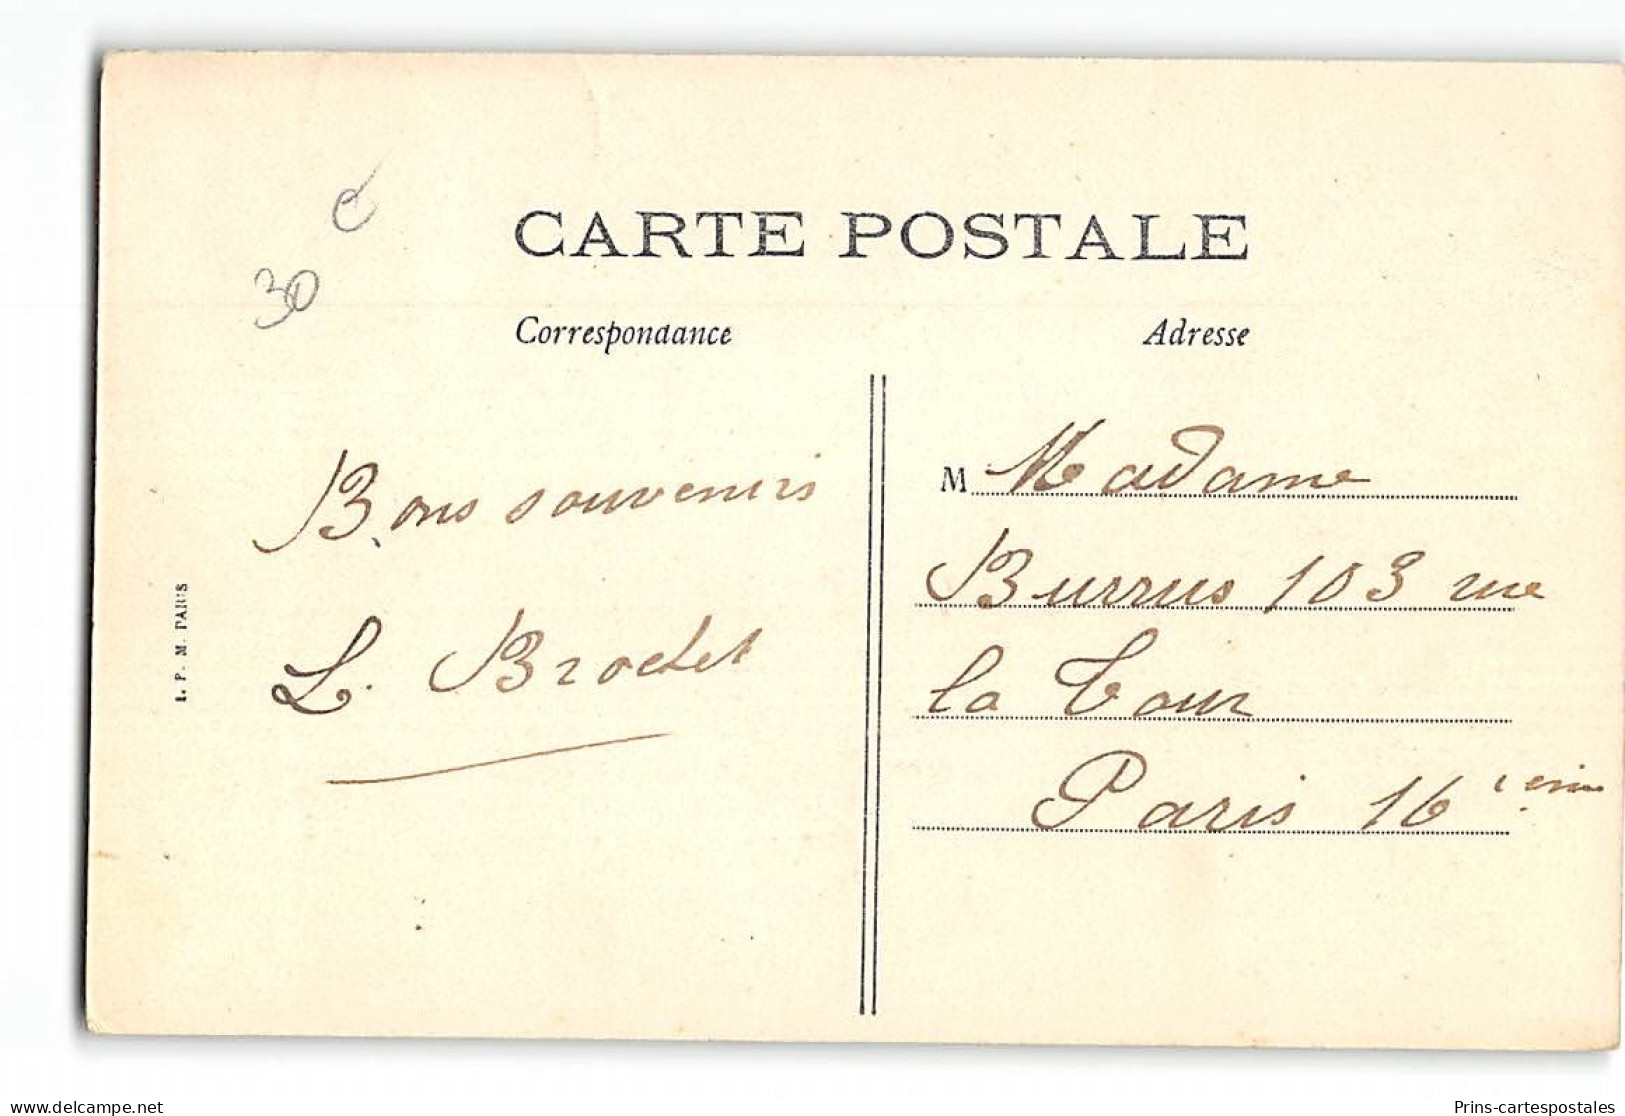 CARTE POSTALE
30
Correspondance
Adresse
Bons souvenirs
L. Brochet
M Madame
Burrus 103 rue
la Tour
Paris 16ème
L. P. M. PARIS
www.delcampe.net
Prins-cartespostales